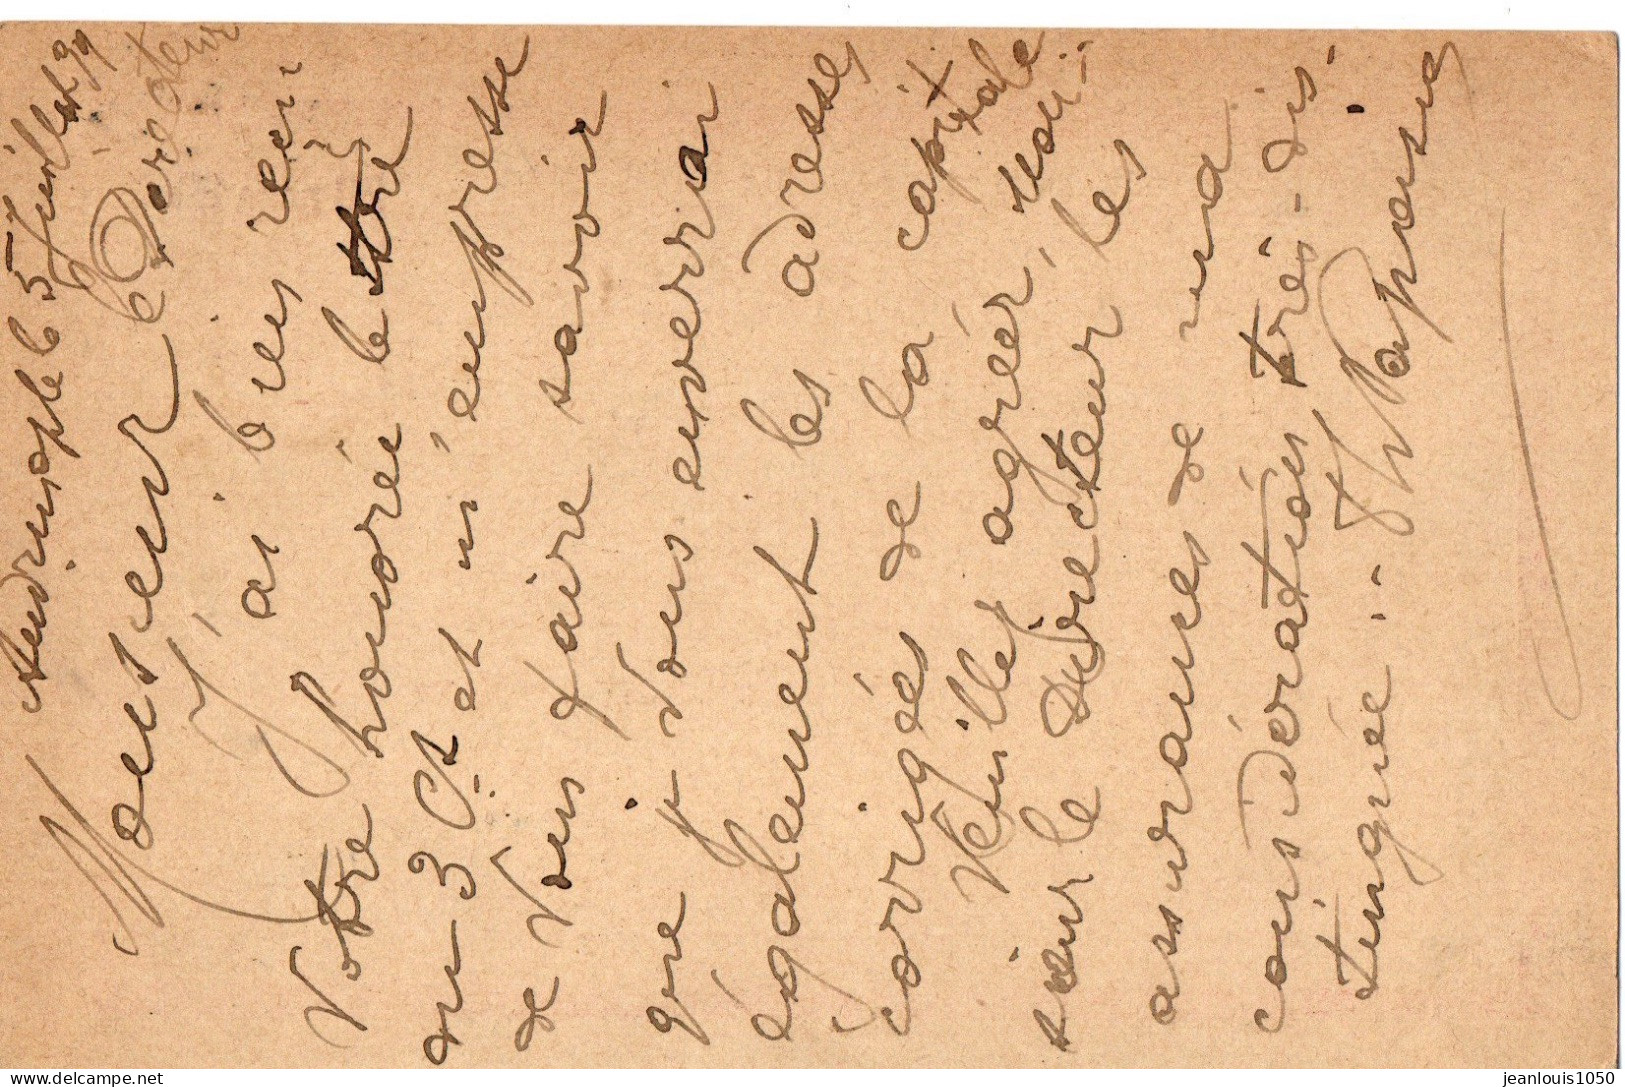 Andrinople le 5 Juillet 99
Monsieur le Directeur
J'ai bien reçu
Votre honorée lettre
du 3 Ct et m'empresse
de Vous faire savoir
que je Vous enverrai
également les adresses
corrigées de la capitale
Veuillez agréer, Mon-
sieur le Directeur, les
assurances de ma
considération très-dis-
tinguée.-
jeanlouis1050